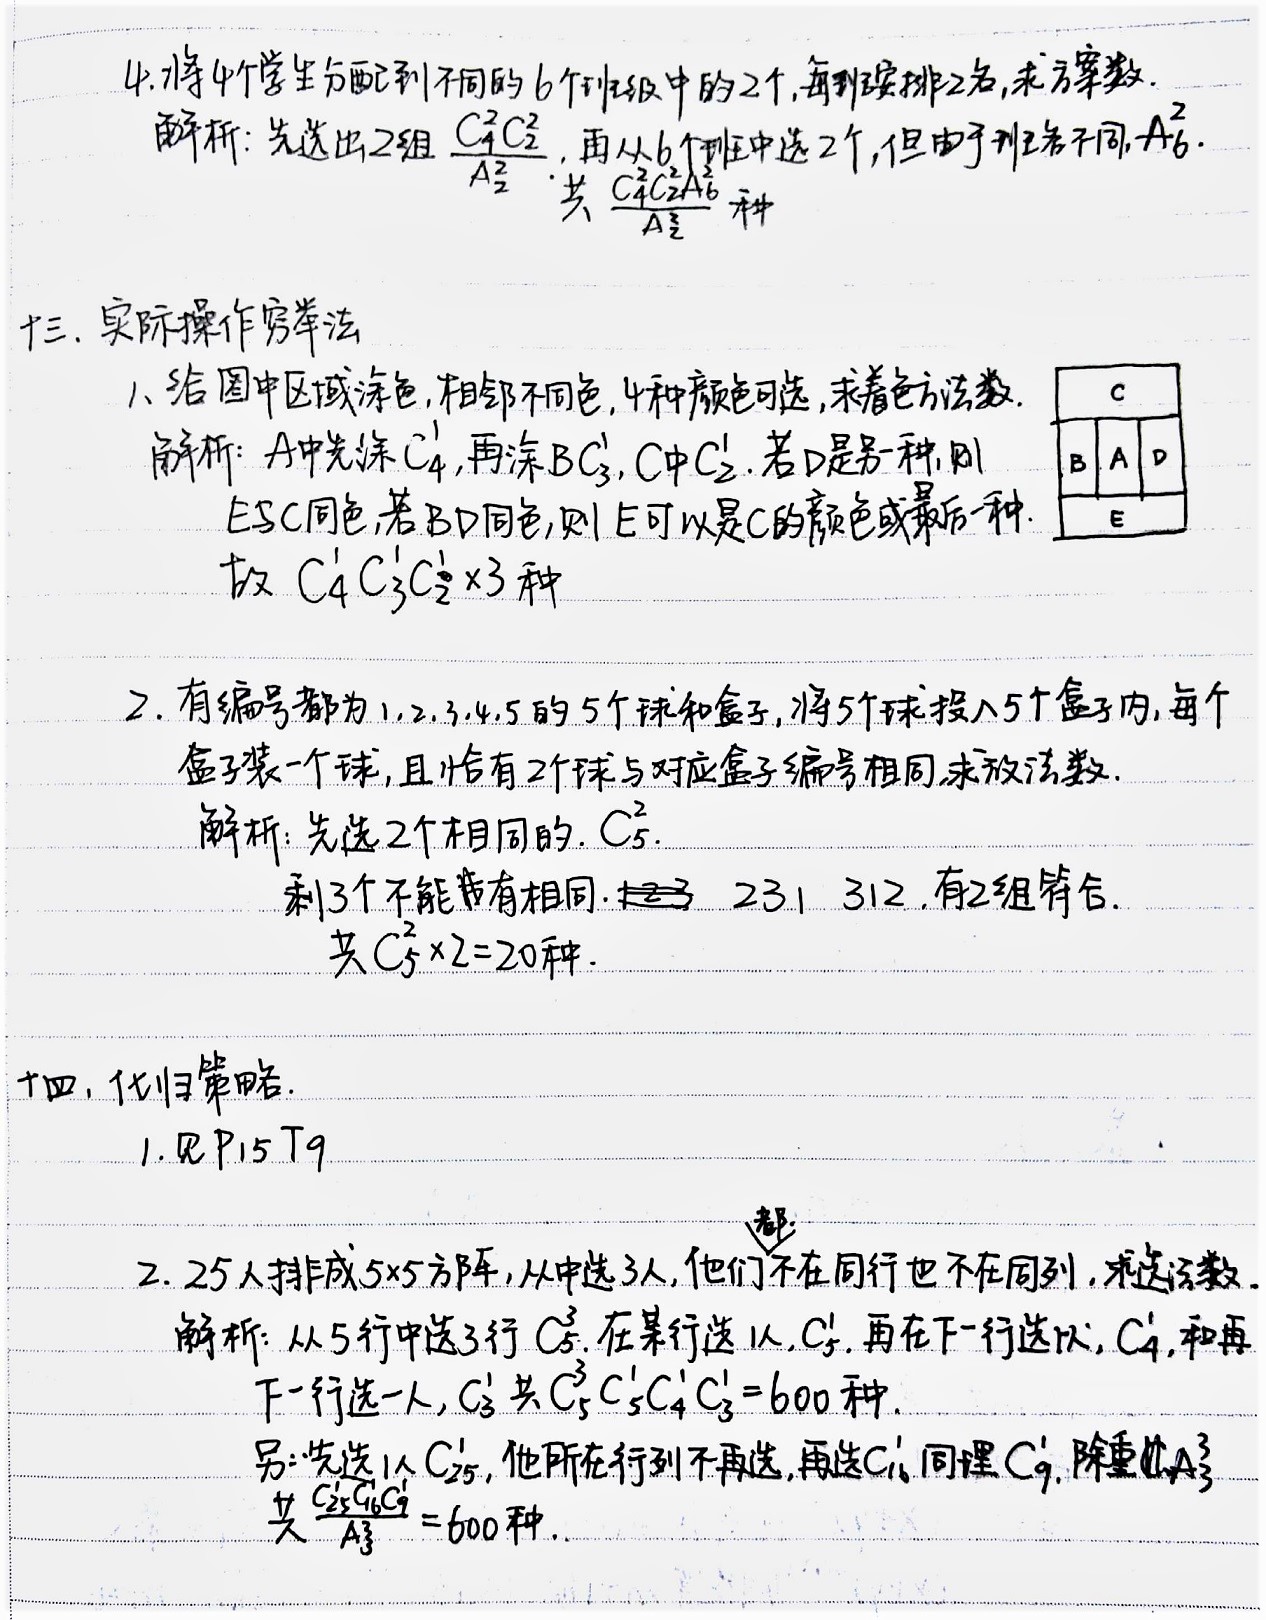 4.将4个学生分配到不同的6个班级中的2个,每班安排2名,求方案数.
解析:先选出2组 C₄²C₂²/A₂². 再从6个班中选2个,但由于班名不同,A₆².
共 C₄²C₂²A₆²/A₂² 种
十三.实际操作穷举法
1、给图中区域涂色,相邻不同色,4种颜色可选,求着色方法数.
C
解析: A中先涂C₄¹,再涂B C₃¹, C中C₂¹. 若D是另一种,则
B A D
E与C同色,若BD同色,则E可以是C的颜色或最后一种.
E
故 C₄¹C₃¹C₂¹×3种
2. 有编号都为1.2.3.4.5的5个球和盒子,将5个球投入5个盒子内,每个
盒子装一个球,且恰有2个球与对应盒子编号相同,求放法数.
解析:先选2个相同的. C₅².
剩3个不能有相同. 231 312.有2组符合.
共C₅²×2=20种.
十四.化归策略.
1.见P15 T9
都
2. 25人排成5×5方阵,从中选3人,他们不在同行也不在同列,求选法数.
解析:从5行中选3行C₅³.在某行选1人.C₅¹.再在下一行选1人, C₄¹,和再
下一行选一人,C₃¹共C₅³C₅¹C₄¹C₃¹=600种.
另:先选1人C₂₅¹,他所在行列不再选,再选C₁₆¹同理C₉¹.除重A₃³
共 C₂₅¹C₁₆¹C₉¹/A₃³ =600种.